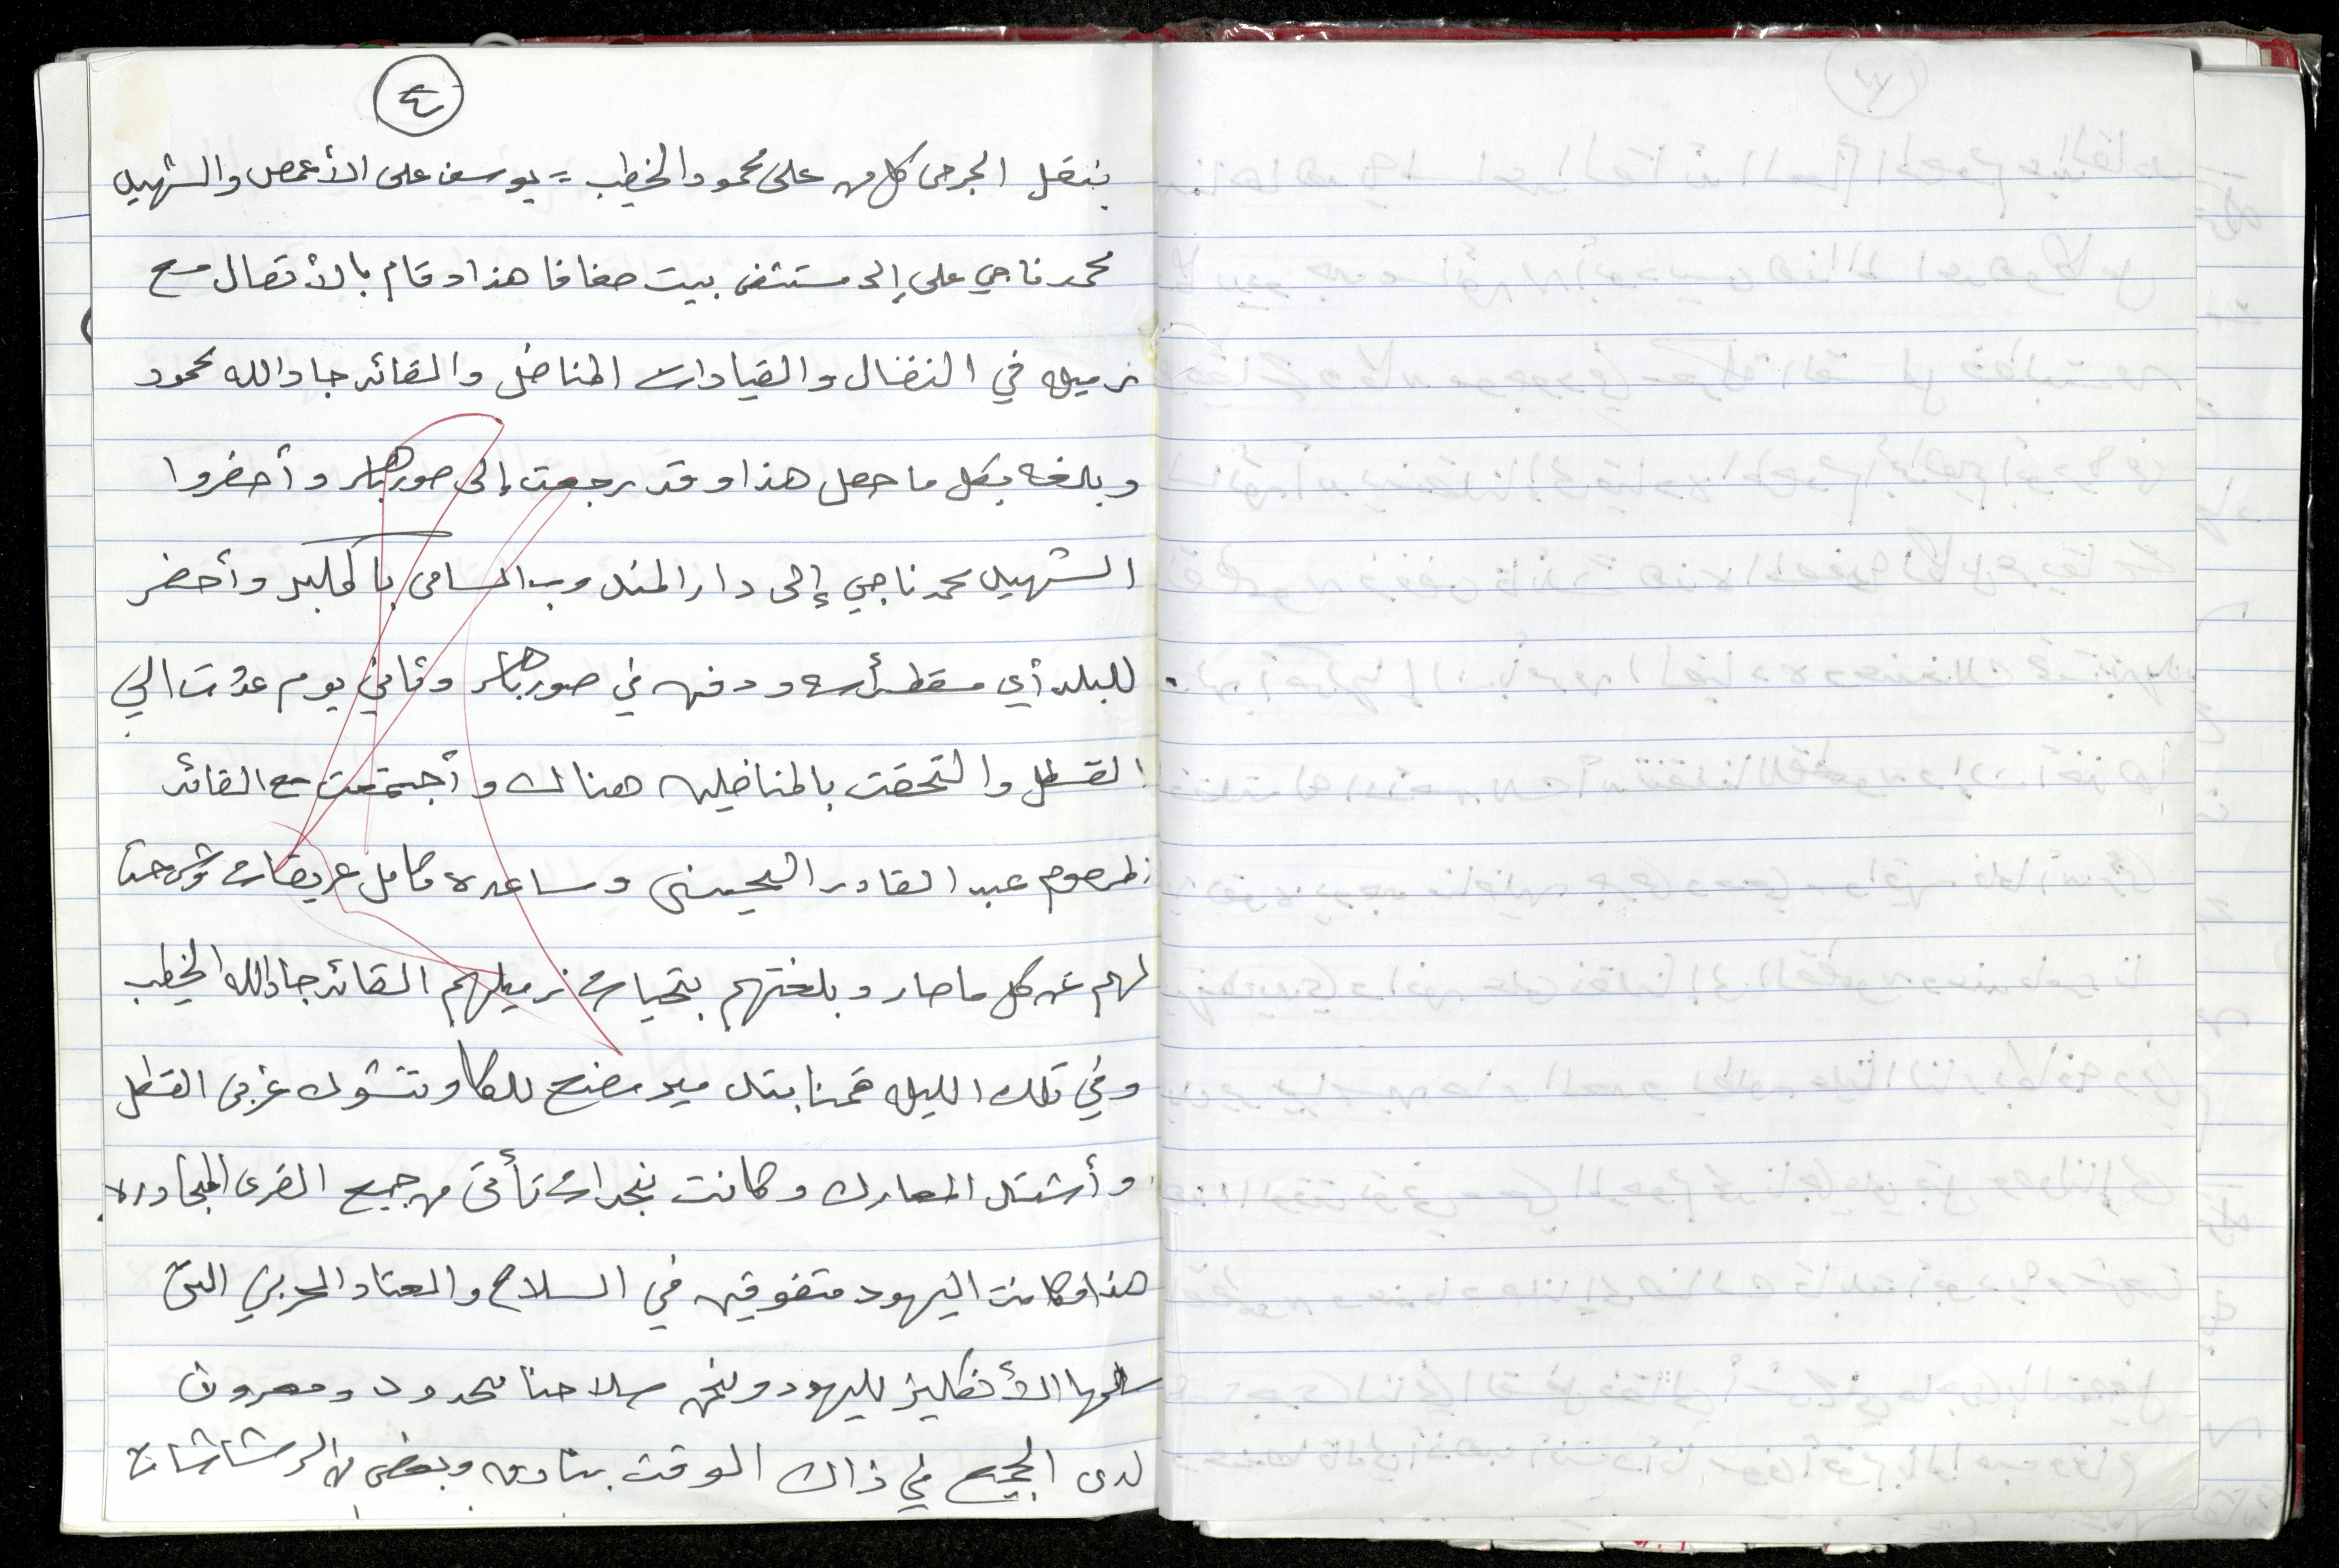 ٤
بنقل الجرحى كل من على محمود الخطيب = يوسف على الأعمص والشهيد
محمد ناجي على إلى مستشفى بيت صفافا هذا وقام بالأتصال مع
زميله في النضال والقيادات المناضل والقائد جاد الله محمود
وبلغه بكل ما حصل هذا وقد رجعت إلى صور باهر وأحضروا
الشهيد محمد ناجي إلى دار المندوب السامى بالمكبر وأحضر
للبلد أي مسقط رأسه ودفنه في صور باهر وثاني يوم عدت الي
القسطل والتحقت بالمناضلين هناك وأجتمعت مع القائد
المرحوم عبد القادر الحسينى وساعده كامل عريقات وشرحنا
لهم عن كل ما صار وبلغتهم بتحيات زميلهم القائد جاد الله الخطيب
وفي تلك الليله قمنا مصنع للكاوتشوك غربى القسطل
وأشتدت المعارك وكانت نجدات تأتى من جميع القرى المجاوره
هذا وكانت اليهود متفوقين في السلاح والعتاد الحربي التى
سلمها الأنكليز لليهود ونحن سلاحنا محدود ومعروف
لدى الجميع في ذاك الوقت بنادق وبعض من الرشاشات